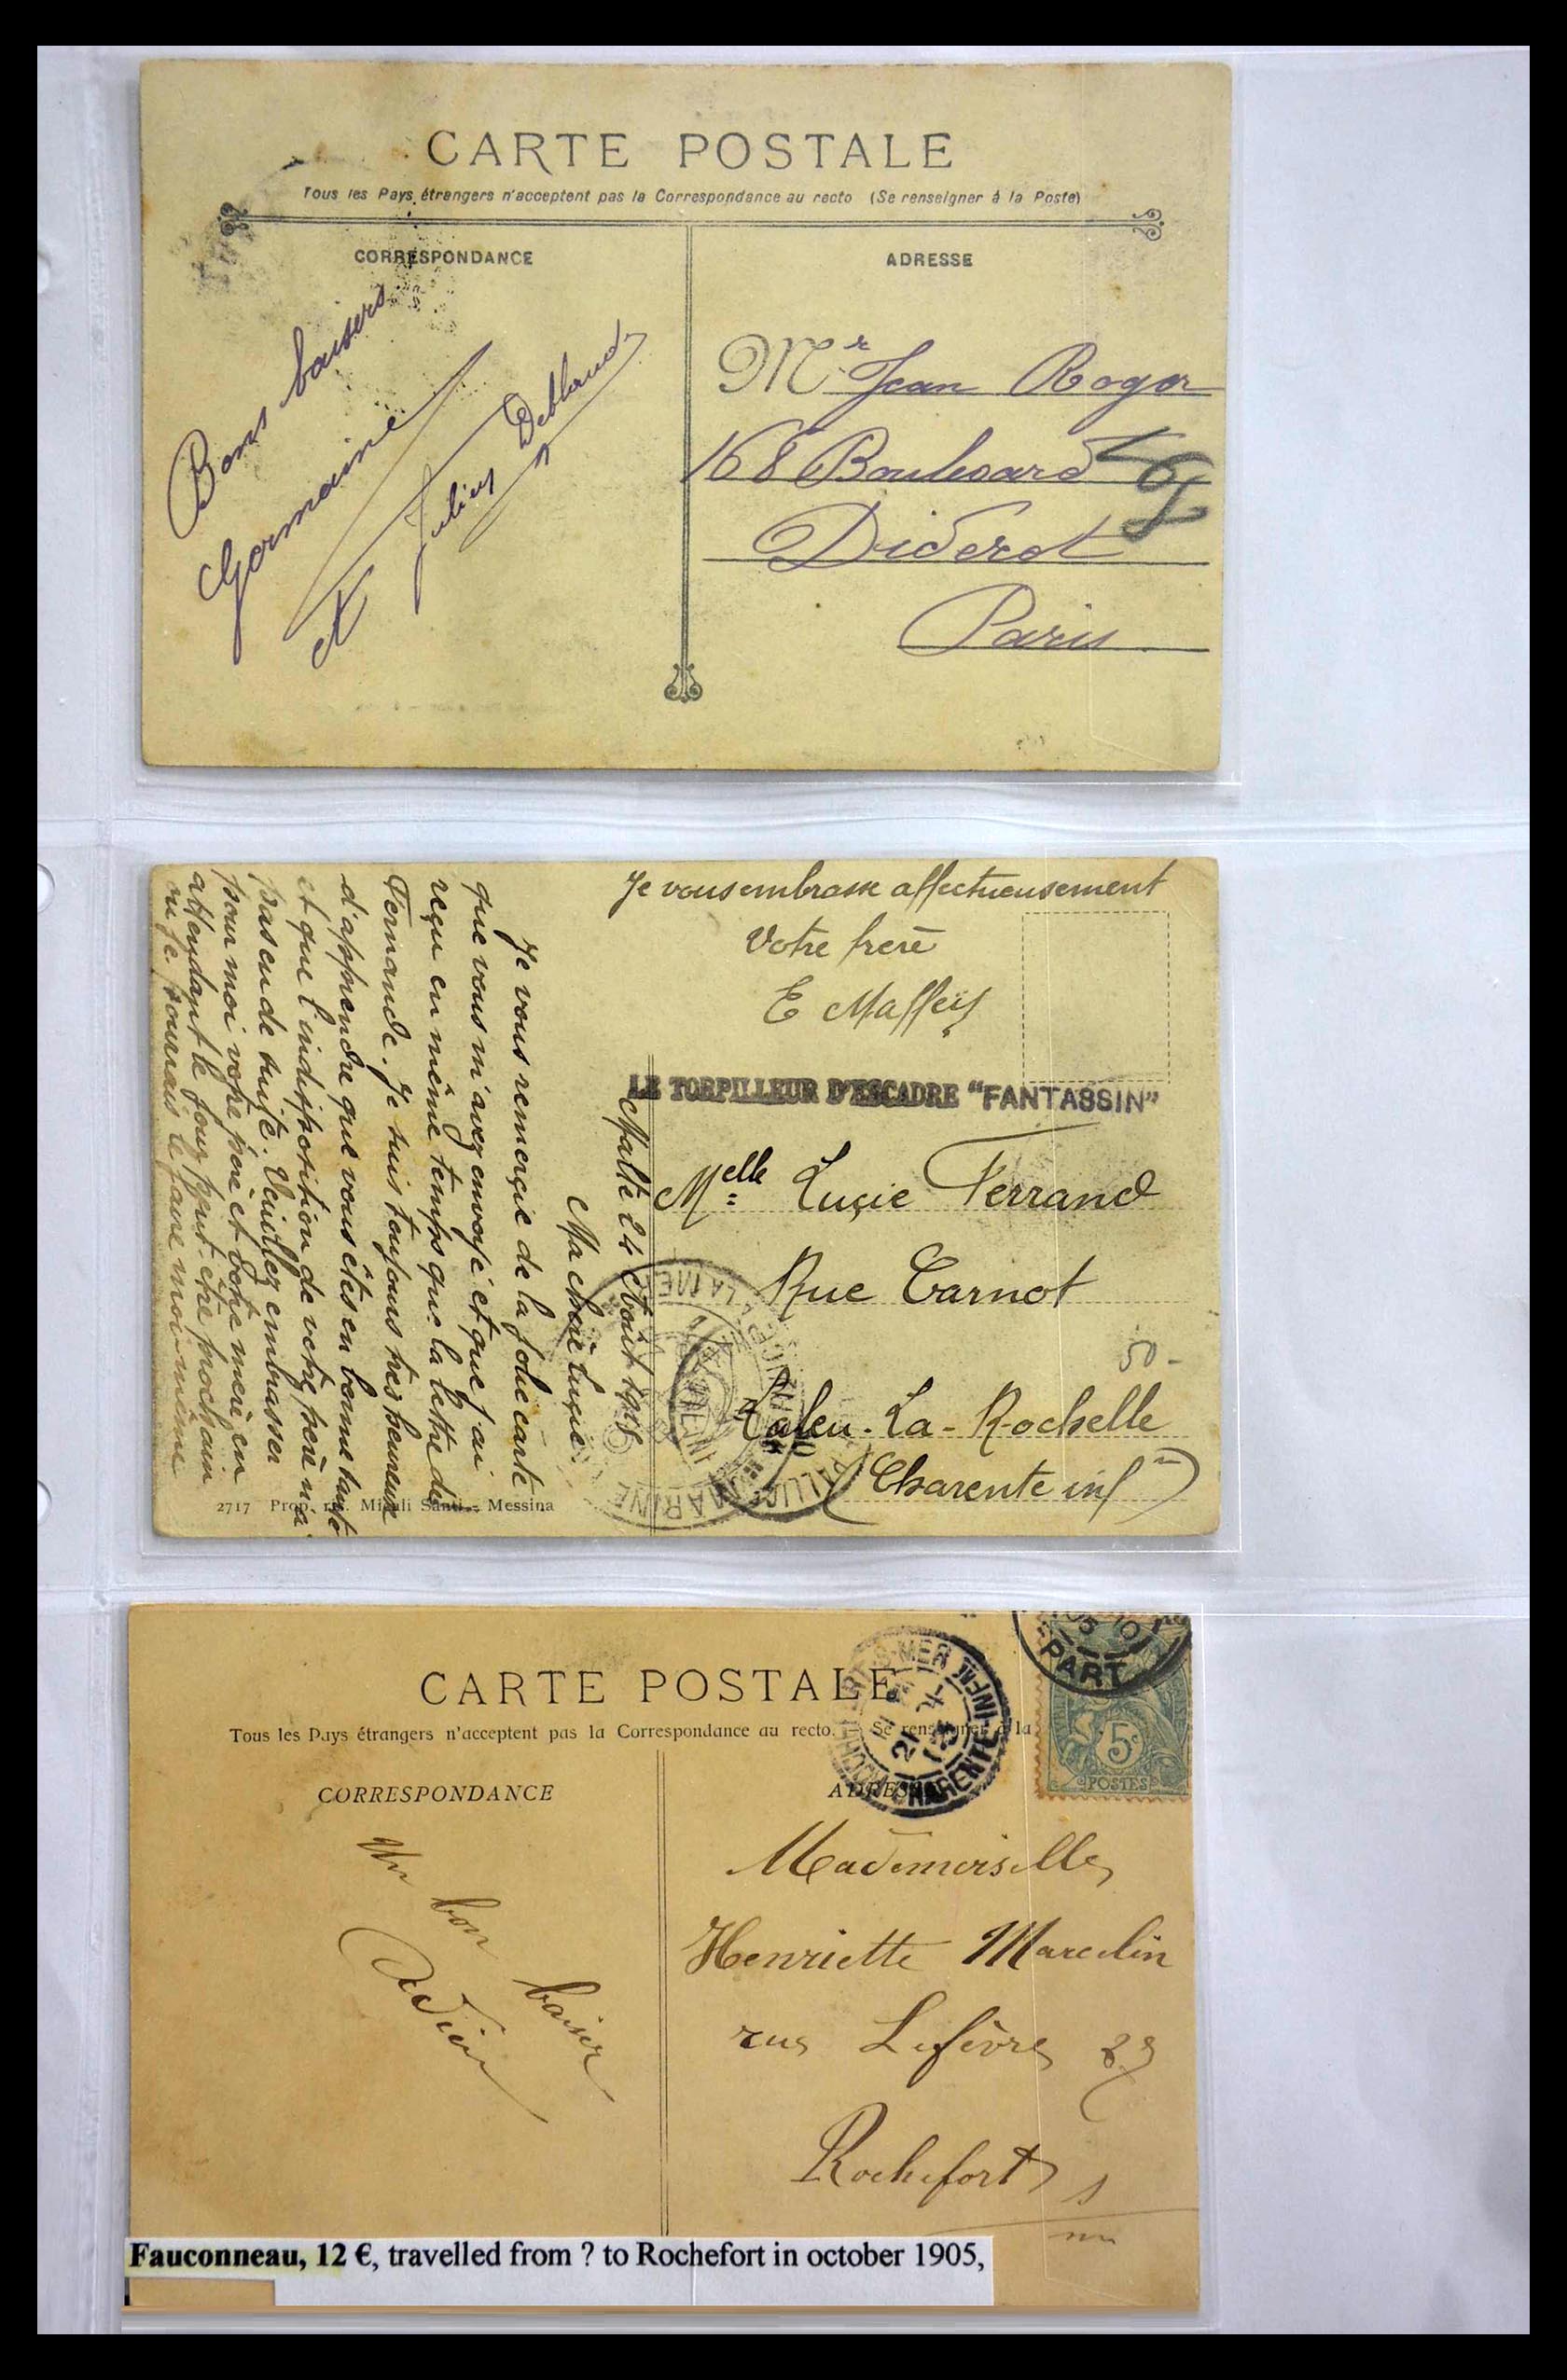 CARTE POSTALE
Tous les Pays étrangers n'acceptent pas la Correspondance au recto (Se renseigner à la Poste)
CORRESPONDANCE
ADRESSE
Bons baisers
Germaine
et Julien
Mr Jean Roger
168 Boulevard
Diderot
Paris
Je vous embrasse affectueusement
Votre frère
E Maffeis
LE TORPILLEUR D'ESCADRE "FANTASSIN"
Malte 24 Août 1918
Ma chère Lucie
Je vous remercie de la jolie carte
que vous m'avez envoyé et que j'ai
reçu en même temps que la lettre de
Fernande. Je suis toujours très heureux
d'apprendre que vous êtes en bonne santé
et que l'indisposition de votre père n'a
pas eu de suite. Veuillez embrasser
pour moi votre père et votre mère en
attendant le jour peut être prochain
ou je pourrais le faire moi même
Melle Lucie Ferrand
Rue Carnot
50-
Laleu-La-Rochelle
(Charente infre)
2717 Prop. Santi - Messina
MARINE
CARTE POSTALE
Tous les Pays étrangers n'acceptent pas la Correspondance au recto. Se renseigner à la
CORRESPONDANCE
ADRESSE
S-MER
CHARENTE-INFRE
21
05
05 10
PART
5c
POSTES
Un bon baiser
Adieu
Mademoiselle
Henriette Marcelin
rue Lefèvre 29
Rochefort s
mer
Fauconneau, 12 €, travelled from ? to Rochefort in october 1905,